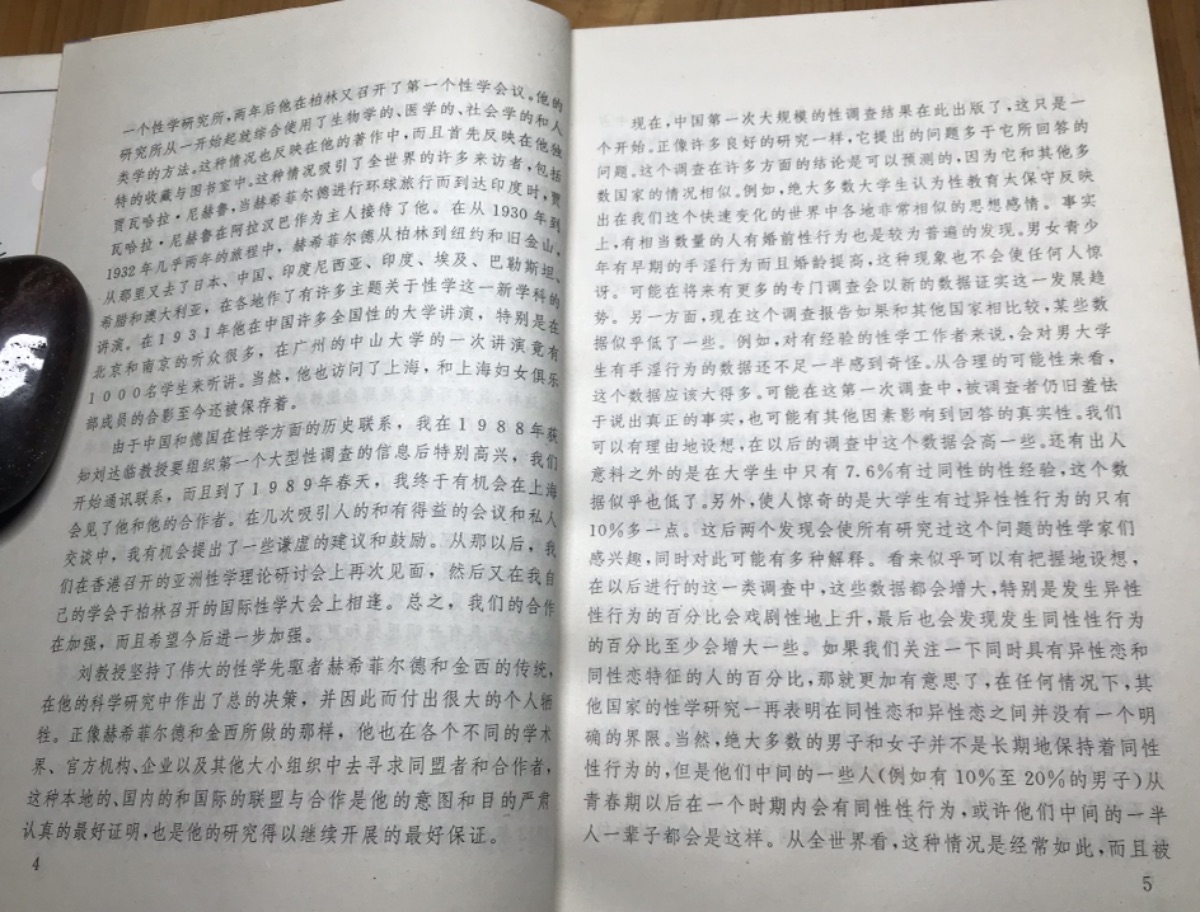 一个性学研究所,两年后他在柏林又召开了第一个性学会议。他的
研究所从一开始起就综合使用了生物学的、医学的、社会学的和人
类学的方法。这种情况也反映在他的著作中,而且首先反映在他独
特的收藏与图书室中。这种情况吸引了全世界的许多来访者,包括
贾瓦哈拉·尼赫鲁,当赫希菲尔德进行环球旅行而到达印度时,贾
瓦哈拉·尼赫鲁在阿拉汉巴作为主人接待了他。在从1930年到
1932年几乎两年的旅程中,赫希菲尔德从柏林到纽约和旧金山,
从那里又去了日本、中国、印度尼西亚、印度、埃及、巴勒斯坦、
希腊和澳大利亚,在各地作了有许多主题关于性学这一新学科的
讲演。在1931年他在中国许多全国性的大学讲演,特别是在
北京和南京的听众很多,在广州的中山大学的一次讲演竟有
1000名学生来听讲。当然,他也访问了上海,和上海妇女俱乐
部成员的合影至今还被保存着。
由于中国和德国在性学方面的历史联系,我在1988年获
知刘达临教授要组织第一个大型性调查的信息后特别高兴,我们
开始通讯联系,而且到了1989年春天,我终于有机会在上海
会见了他和他的合作者。在几次吸引人的和有得益的会议和私人
交谈中,我有机会提出了一些谦虚的建议和鼓励。从那以后,我
们在香港召开的亚洲性学理论研讨会上再次见面,然后又在我自
己的学会于柏林召开的国际性学大会上相逢。总之,我们的合作
在加强,而且希望今后进一步加强。
刘教授坚持了伟大的性学先驱者赫希菲尔德和金西的传统,
在他的科学研究中作出了总的决策,并因此而付出很大的个人牺
牲。正像赫希菲尔德和金西所做的那样,他也在各个不同的学术
界、官方机构、企业以及其他大小组织中去寻求同盟者和合作者,
这种本地的、国内的和国际的联盟与合作是他的意图和目的严肃
认真的最好证明,也是他的研究得以继续开展的最好保证。
4
现在,中国第一次大规模的性调查结果在此出版了,这只是一
个开始。正像许多良好的研究一样,它提出的问题多于它所回答的
问题。这个调查在许多方面的结论是可以预测的,因为它和其他多
数国家的情况相似。例如,绝大多数大学生认为性教育太保守反映
出在我们这个快速变化的世界中各地非常相似的思想感情。事实
上,有相当数量的人有婚前性行为也是较为普遍的发现。男女青少
年有早期的手淫行为而且婚龄提高,这种现象也不会使任何人惊
讶。可能在将来有更多的专门调查会以新的数据证实这一发展趋
势。另一方面,现在这个调查报告如果和其他国家相比较,某些数
据似乎低了一些。例如,对有经验的性学工作者来说,会对男大学
生有手淫行为的数据还不足一半感到奇怪。从合理的可能性来看,
这个数据应该大得多。可能在这第一次调查中,被调查者仍旧羞怯
于说出真正的事实,也可能有其他因素影响到回答的真实性。我们
可以有理由地设想,在以后的调查中这个数据会高一些。还有出人
意料之外的是在大学生中只有7.6%有过同性的性经验,这个数
据似乎也低了。另外,使人惊奇的是大学生有过异性性行为的只有
10%多一点。这后两个发现会使所有研究过这个问题的性学家们
感兴趣,同时对此可能有多种解释。看来似乎可以有把握地设想,
在以后进行的这一类调查中,这些数据都会增大,特别是发生异性
性行为的百分比会戏剧性地上升,最后也会发现发生同性性行为
的百分比至少会增大一些。如果我们关注一下同时具有异性恋和
同性恋特征的人的百分比,那就更加有意思了,在任何情况下,其
他国家的性学研究一再表明在同性恋和异性恋之间并没有一个明
确的界限。当然,绝大多数的男子和女子并不是长期地保持着同性
性行为的,但是他们中间的一些人(例如有10%至20%的男子)从
青春期以后在一个时期内会有同性性行为,或许他们中间的一半
人一辈子都会是这样。从全世界看,这种情况是经常如此,而且被
5